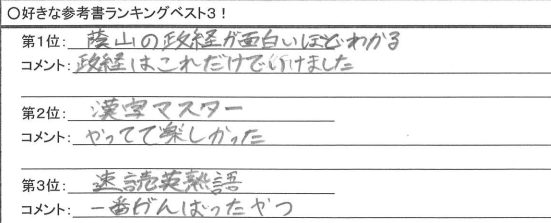 〇好きな参考書ランキングベスト3！
第1位：蔭山の政経が面白いほどわかる
コメント：政経はこれだけで行けました
第2位：漢字マスター
コメント：やってて楽しかった
第3位：速読英熟語
コメント：一番がんばったやつ